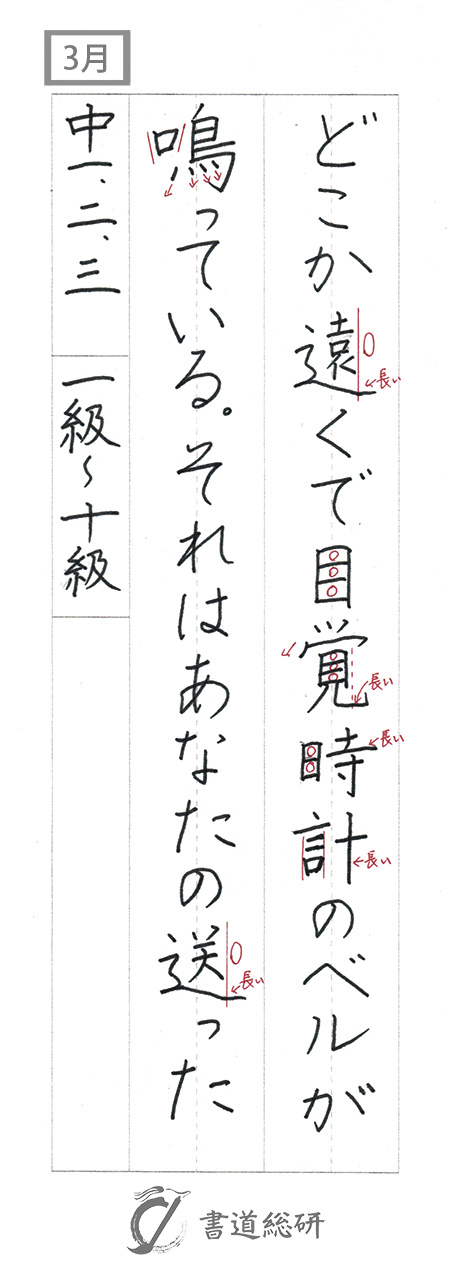 3月
どこか遠くで目覚時計のベルが
鳴っている。それはあなたの送った
中一、二、三 一級~十級
長い
長い
長い
長い
長い
書道総研